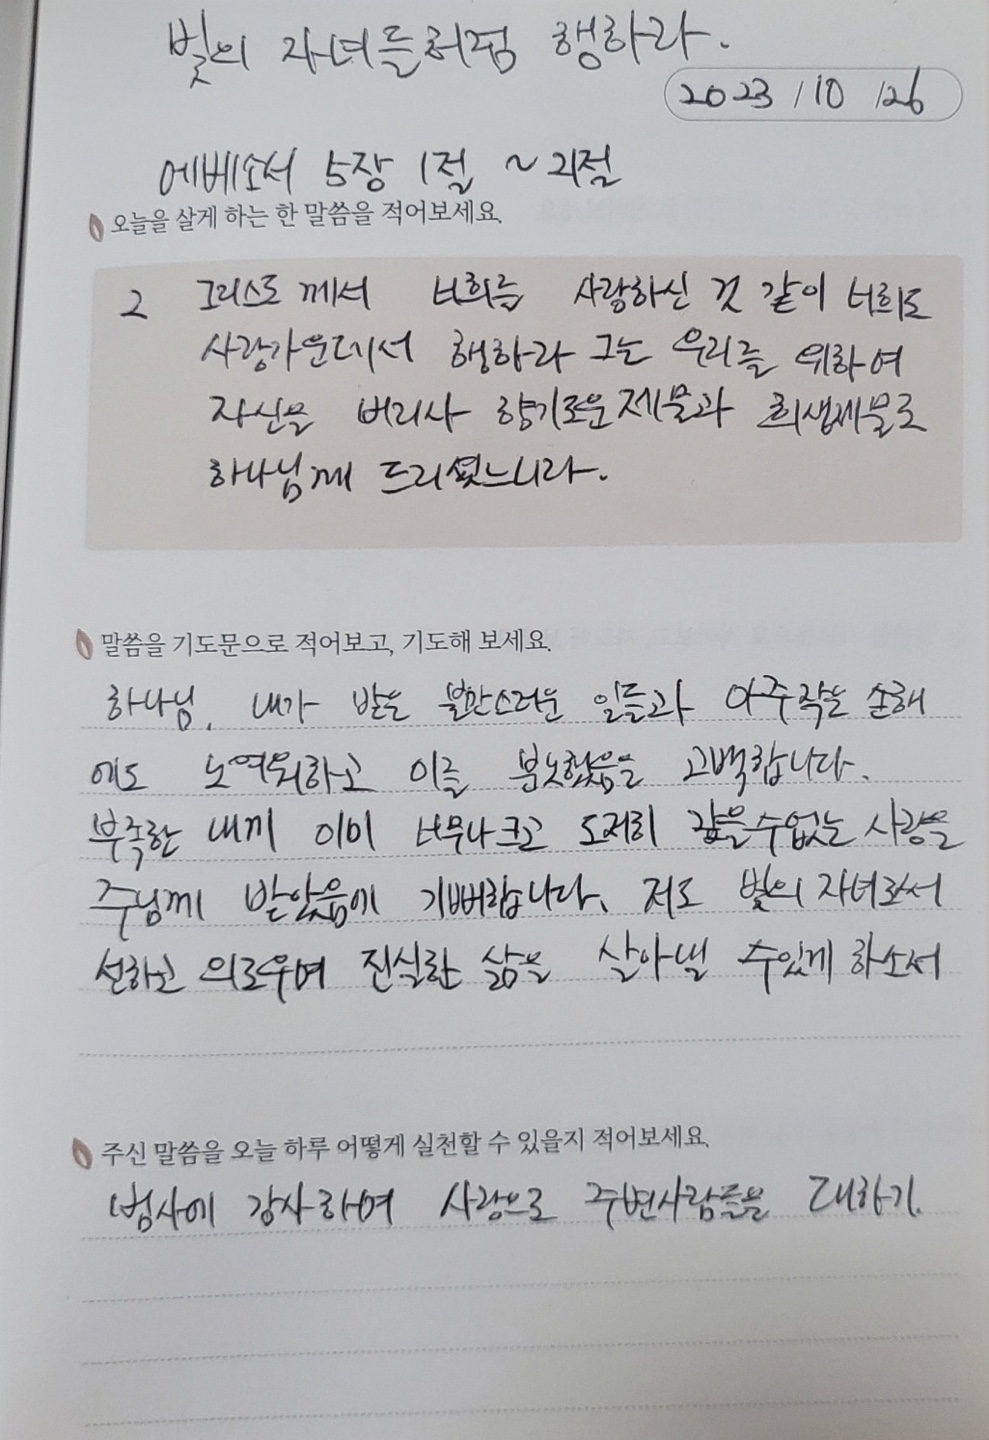 빛의 자녀들처럼 행하라.
2023 / 10 / 26
에베소서 5장 1절 ~ 21절
오늘을 살게 하는 한 말씀을 적어보세요.
2 그리스도께서 너희를 사랑하신 것 같이 너희도
사랑가운데서 행하라 그는 우리를 위하여
자신을 버리사 향기로운 제물과 희생제물로
하나님께 드리셨느니라.
말씀을 기도문으로 적어보고, 기도해 보세요.
하나님, 내가 받은 불만스러운 일들과 아주작은 손해
에도 노여워하고 이를 분노했음을 고백합니다.
부족한 내게 이미 너무나 크고 도저히 갚을수없는 사랑을
주님께 받았음에 기뻐합니다. 저도 빛의 자녀로서
선하고 의로우며 진실한 삶을 살아낼 수있게 하소서
주신 말씀을 오늘 하루 어떻게 실천할 수 있을지 적어보세요.
범사에 감사하며 사랑으로 주변사람들을 대하기.